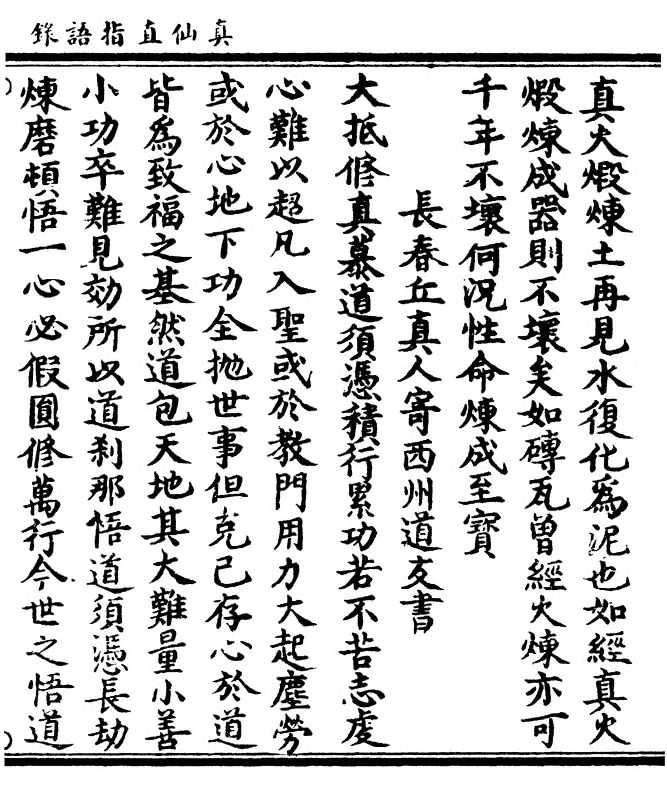 真仙直指語錄
真火煅煉土再見水復化為泥也如經真火
煅煉成器則不壞矣如磚瓦曽經火煉亦可
千年不壞何況性命煉成至寶
長春丘真人寄西州道友書
大抵修真慕道須憑積行累功若不苦志虔
心難以超凡入聖或於教門用力大起塵勞
或於心地下功全拋世事但克己存心於道
皆為致福之基然道包天地其大難量小善
小功卒難見効所以道刹那悟道須憑長劫
煉磨頓悟一心必假圓修萬行今世之悟道